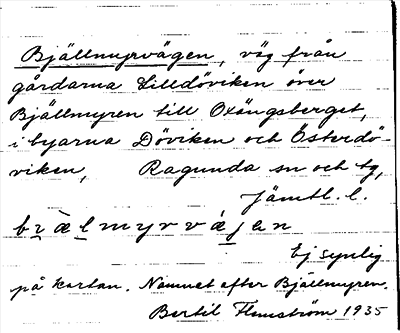 Bjällmyrvägen, väg från
gårdarna Lilldöviken över
Bjällmyren till Oxängsberget,
i byarna Döviken och Österdö-
viken, Ragunda sn och tg,
Jämtl. l.
Ej synlig
på kartan. Namnet efter Bjällmyren.
Bertil Flemström 1935